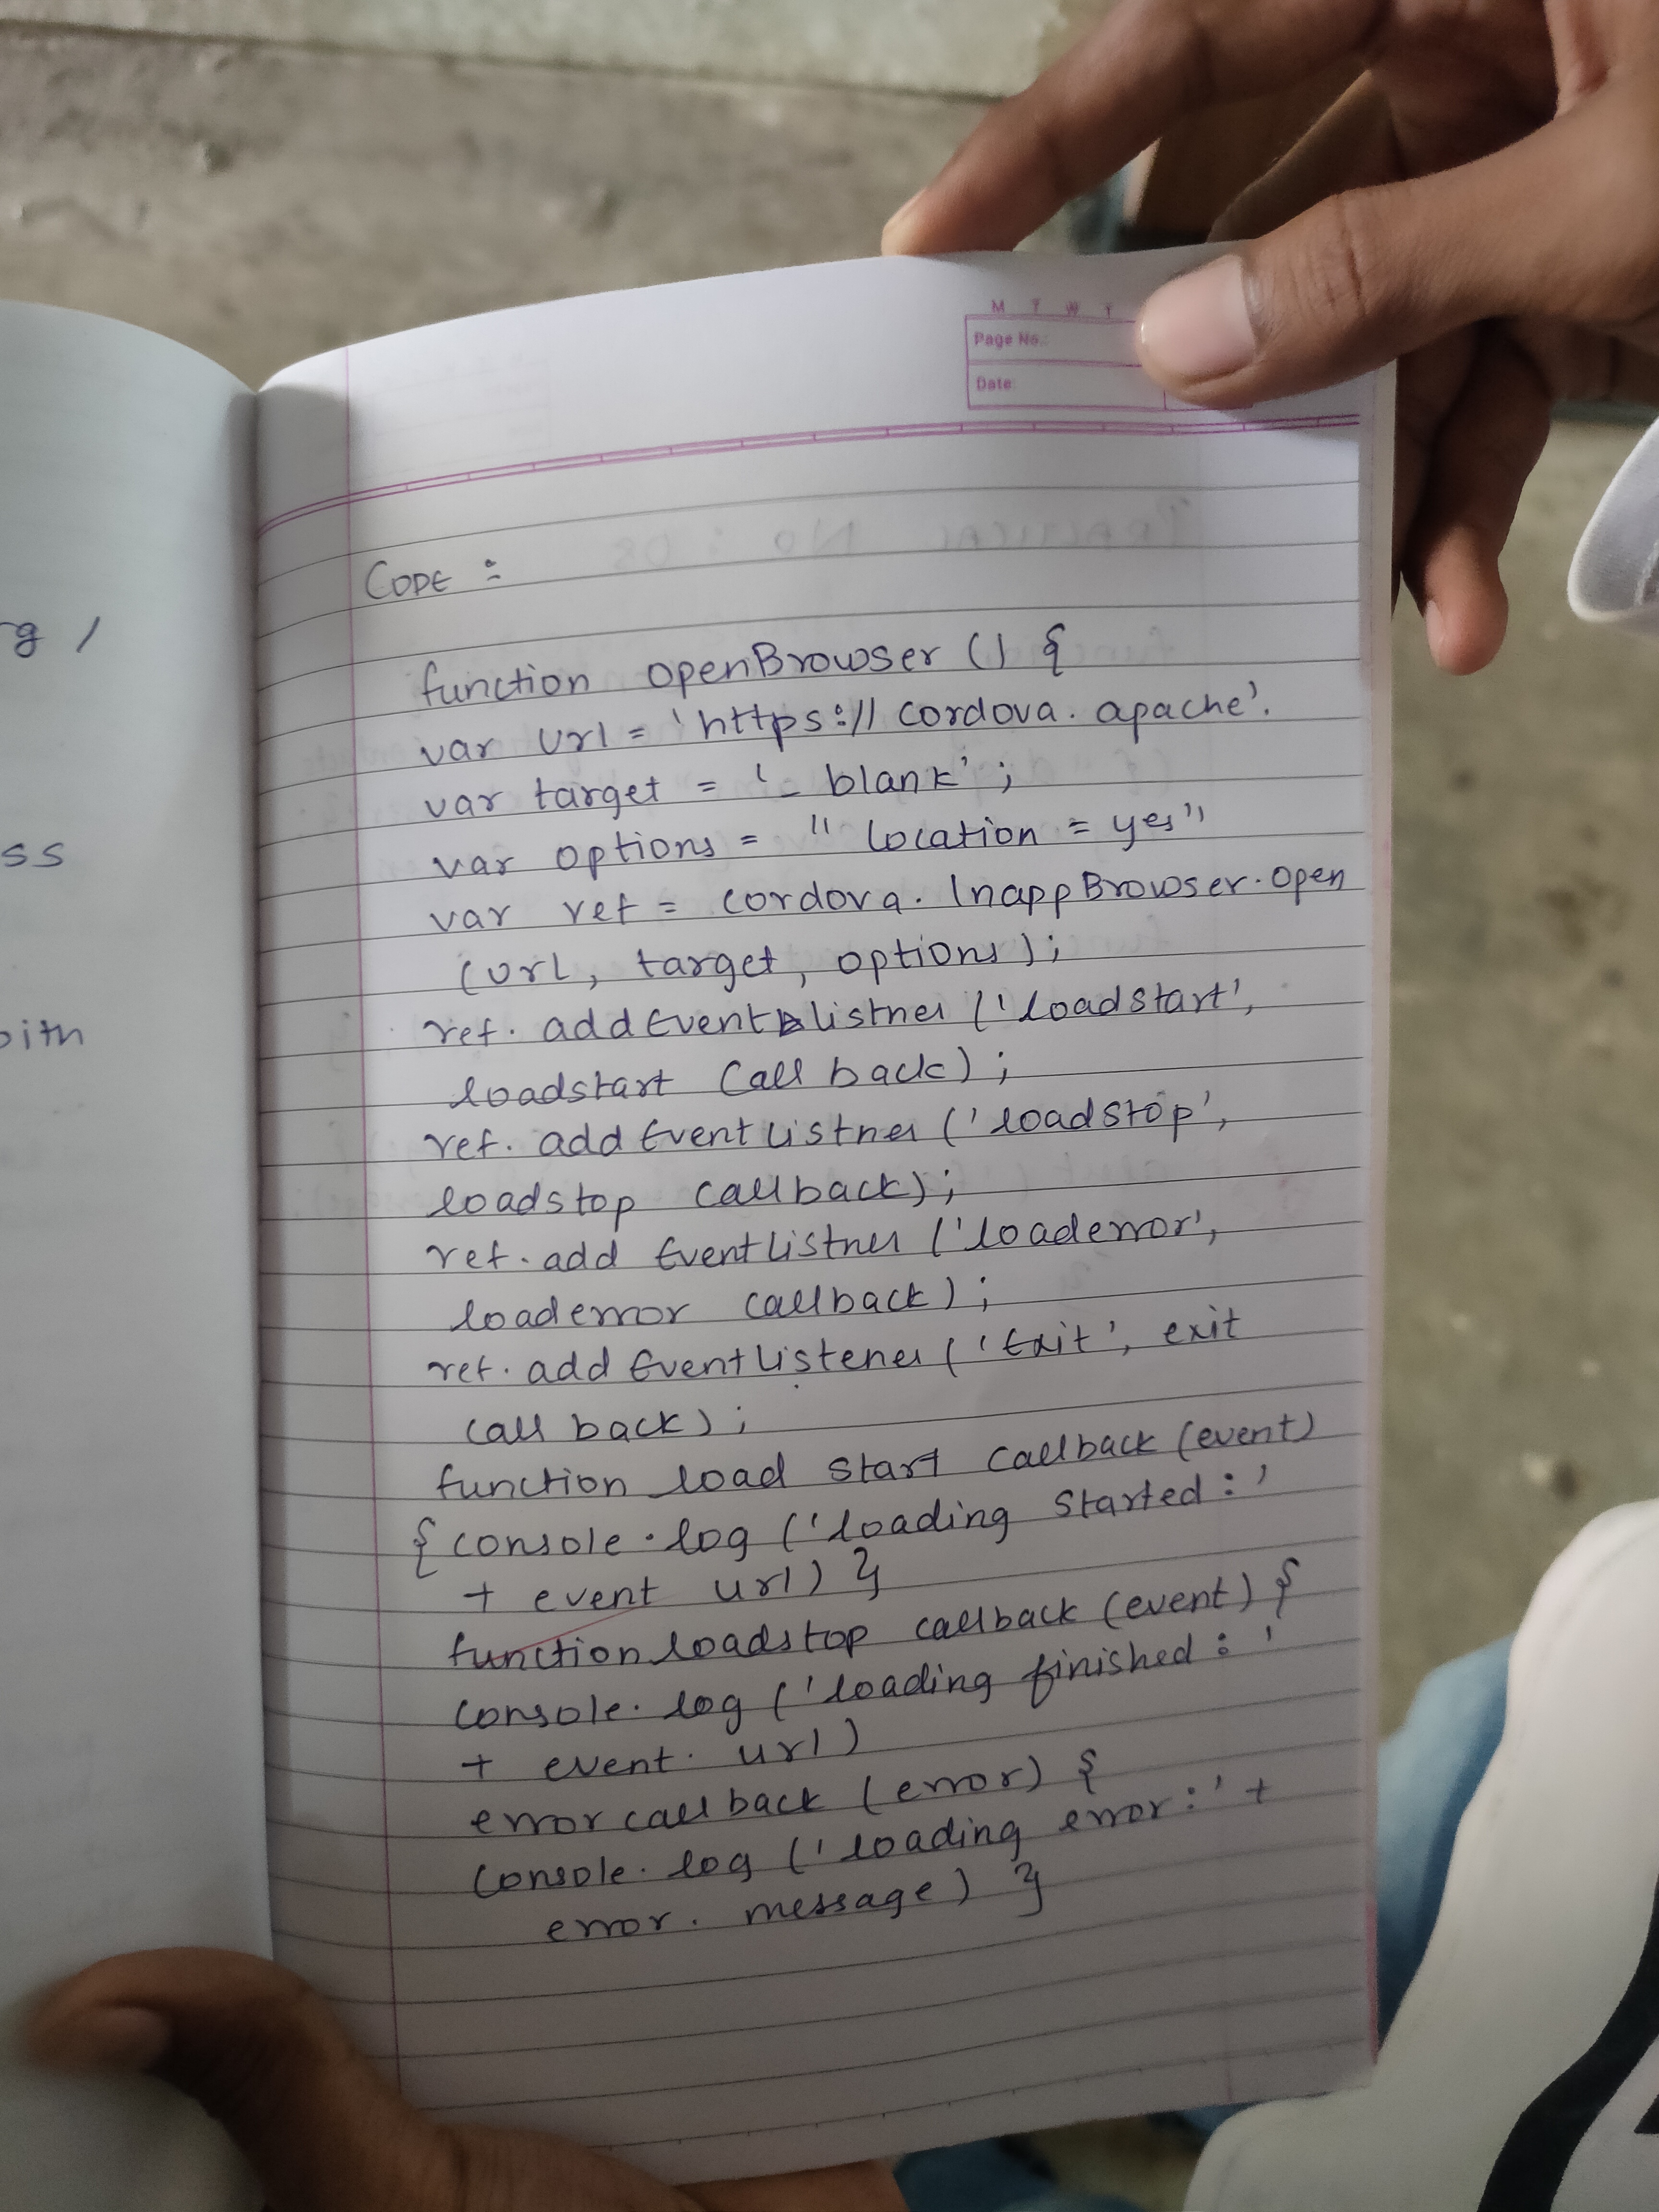 rg /
ss
with
M T W T
Page No.:
Date:
CODE :
function openBrowser () {
var url = 'https:// cordova. apache'.
var target = '_ blank' ;
var options = " location = yes"
var ref = cordova. InappBrowser. open
(url, target, options);
ref. addEventlistner ('loadstart',
loadstart Call back) ;
ref. add Event Listner ('loadstop',
loadstop callback);
ref. add EventListner ('loaderror',
loaderror callback) ;
ref. add EventListener ('Exit', exit
call back) ;
function load start callback (event)
{ console. log ('loading started : '
+ event url) }
function loadstop callback (event) {
console. log ('loading finished : '
+ event. url)
error call back (error) {
console. log ('loading error : ' +
error. message) }